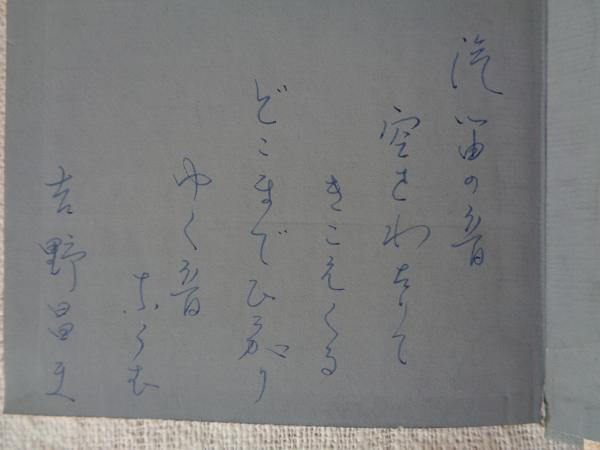 汽笛の音
空をわたりて
きこえくる
どこまでひろがり
ゆく音
ならむ
吉野昌夫